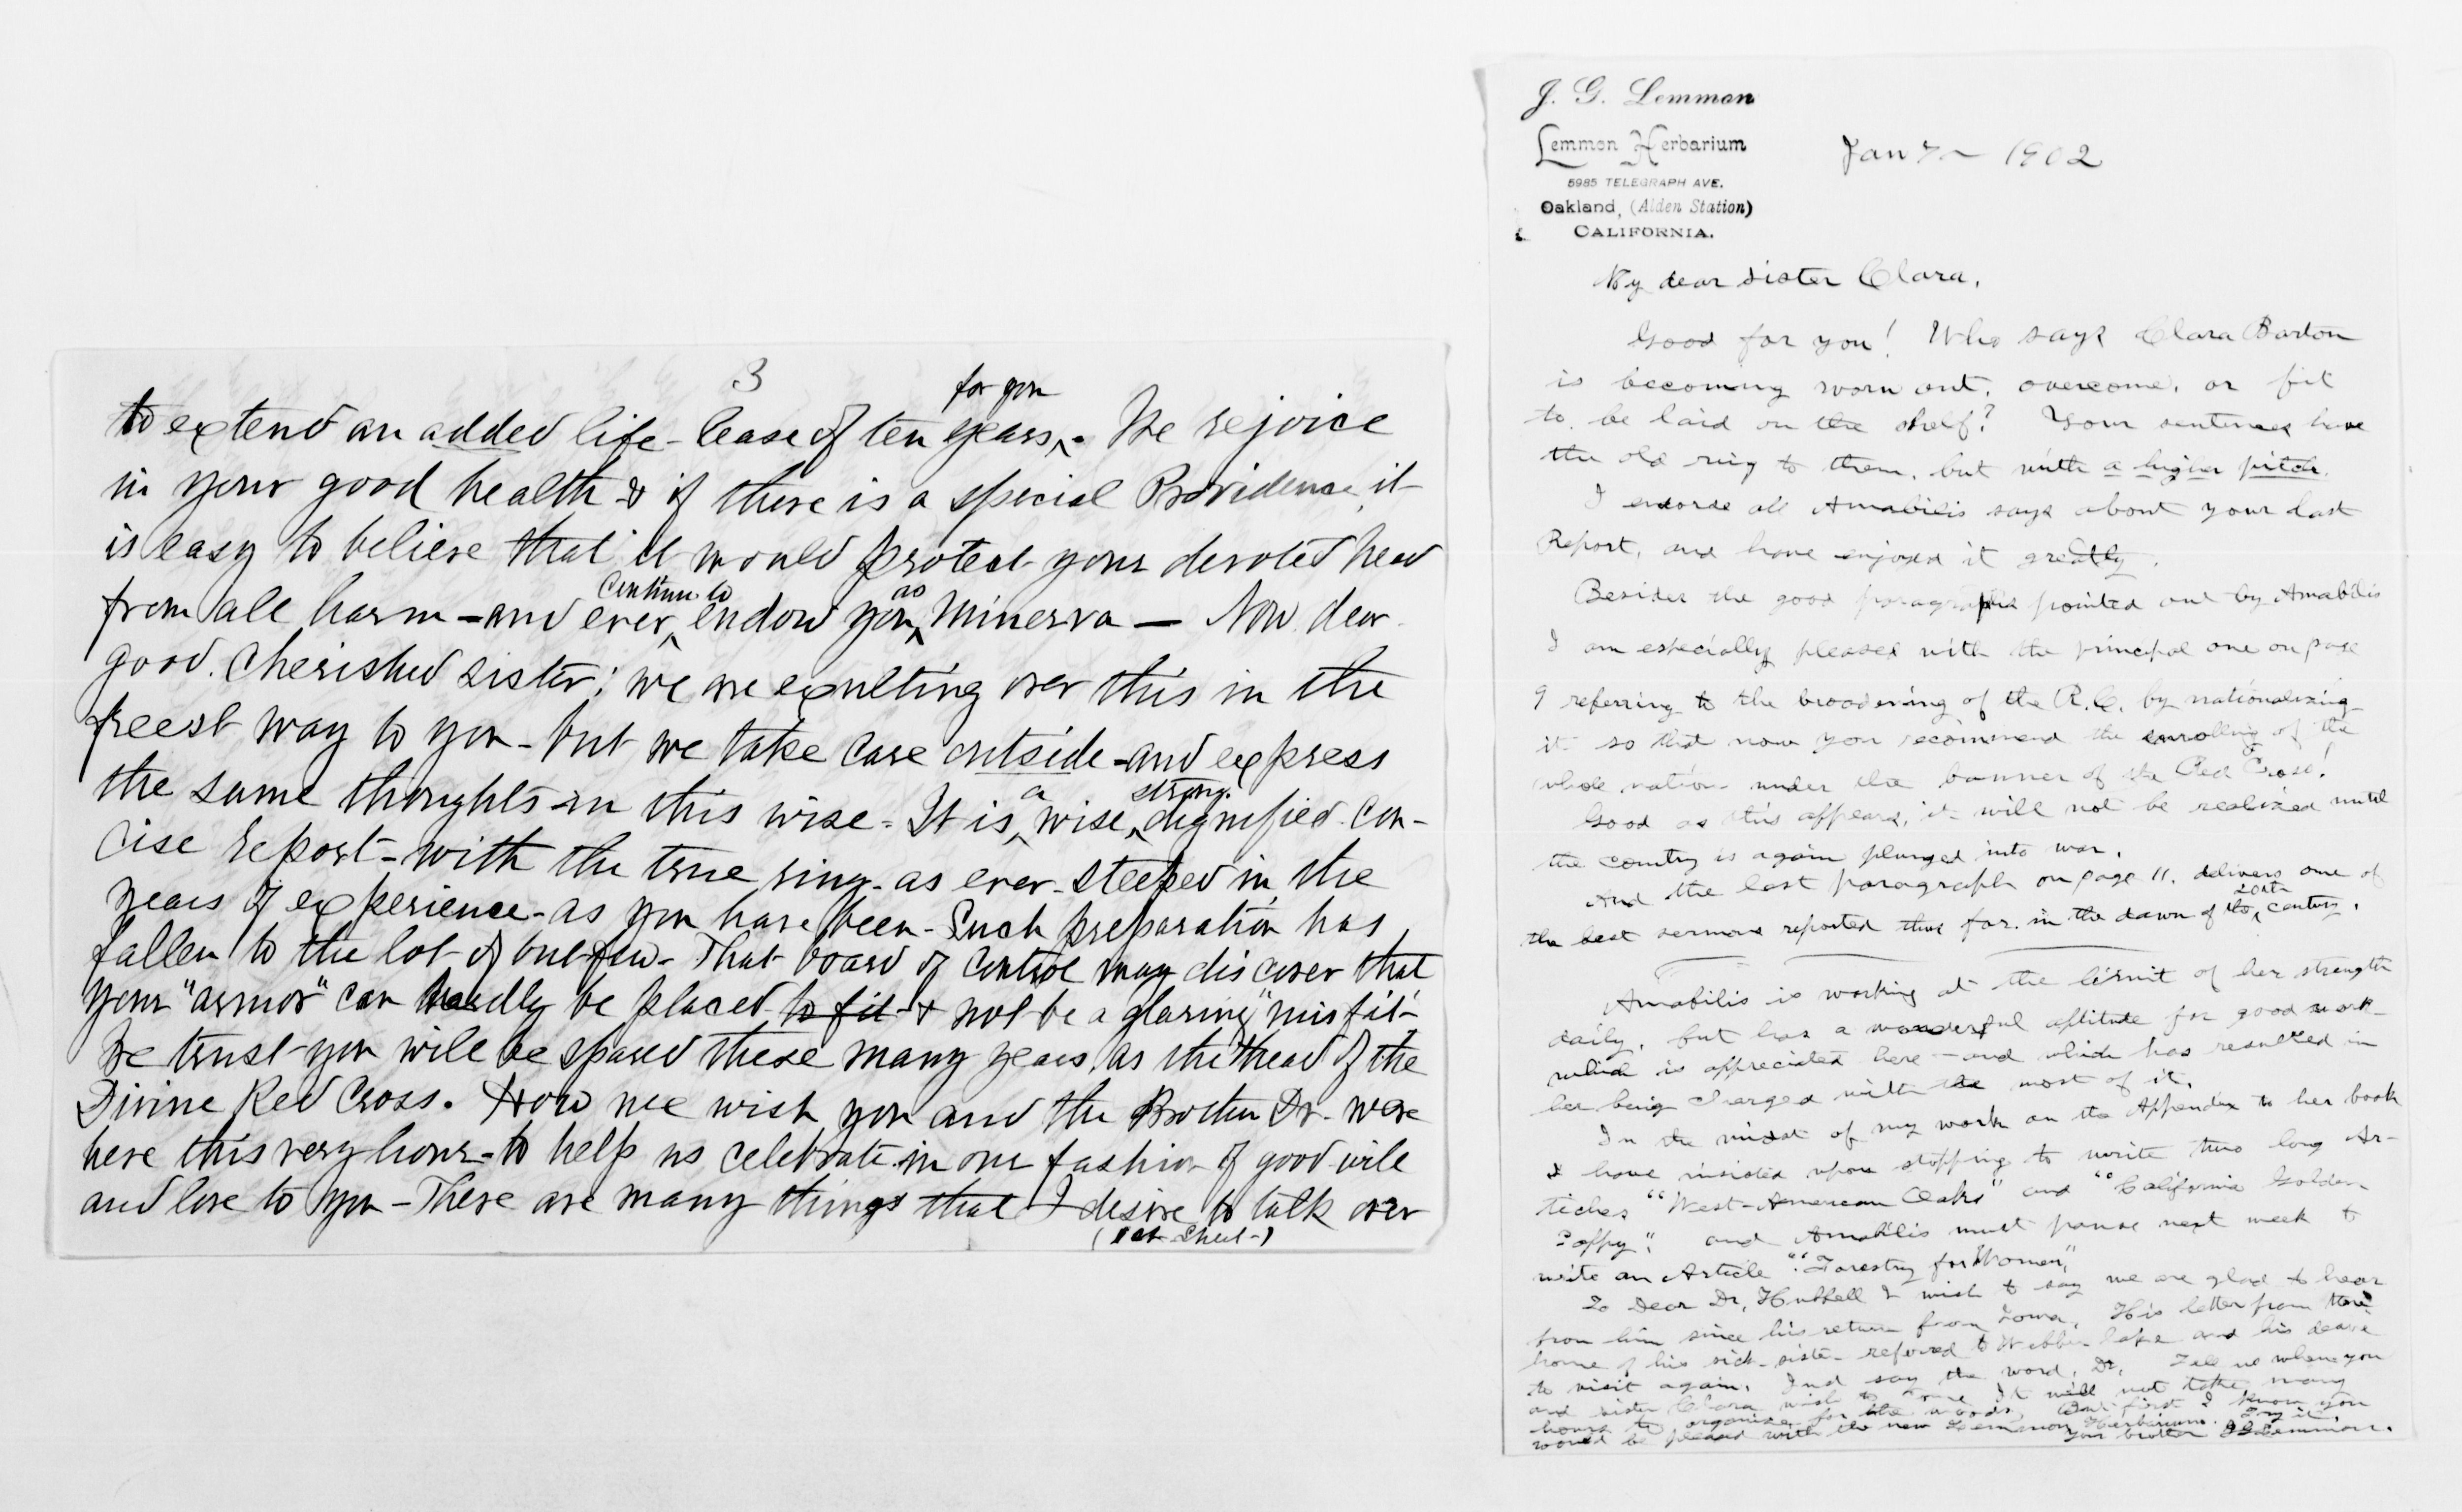 3
to extend an added life-lease of ten years for you. We rejoice
in your good health & if there is a special Providence, it
is easy to believe that it would protect your devoted head
from all harm - and ever continue to endow you as Minerva — Now dear
good. cherished sister; we are exulting over this in the
freest way to you - but we take care outside - and express
the same thoughts in this wise - It is a wise, strong. dignified. con-
cise report - with the true ring - as ever - steeped in the
years of experience - as you have been - Such preparation has
fallen to the lot of but few - That board of control may discover that
your "armor" can hardly be placed to fit & not be a glaring "misfit"
We trust you will be spared these many years, as the Head of the
Divine Red Cross. How we wish you and the Brother Dr. were
here this very hour - to help us celebrate in our fashion of good will
and love to you - There are many things that I desire to talk over
J. G. Lemmon
Lemmon Herbarium
5985 TELEGRAPH AVE.
Oakland, (Alden Station)
CALIFORNIA.
Jan 7 - 1902
My dear sister Clara,
Good for you! Who says Clara Barton
is becoming worn out, overcome, or fit
to be laid on the shelf? Your sentences have
the old ring to them, but with a higher pitch.
I endorse all Amabilis says about your last
Report, and have enjoyed it greatly.
Besides the good paragraphs pointed out by Amabilis
I am especially pleased with the principal one on page
9 referring to the broadening of the R.C. by nationalizing
it so that now you recommend the enrolling of the
whole nation under the banner of the Red Cross!
Good as this appears, it will not be realized until
the country is again plunged into war.
And the last paragraph on page 11. delivers one of
the best sermons reported thus far in the dawn of the 20th century.
Amabilis is working at the limit of her strength
daily, but has a wonderful aptitude for good work
which is appreciated here - and which has resulted in
her being charged with the most of it.
In the midst of my work on the Appendix to her book
I have insisted upon stopping to write two long Ar-
ticles "West-American Oaks" and "California Golden
Poppy". and Amabilis must pause next week to
write an Article "Forestry for Women",
To Dear Dr. Hubbell I wish to say we are glad to hear
from him since his return from Iowa. His letter from there
home of his sick sister referred to Webber lake and his desire
to visit again. Just say the word, Dr. Tell us when you
and sister Clara wish to come It will not take many
hours to organize for the woods. But first I know you
would be pleased with the new Lemmon Herbarium. Try it.
Your brother J G Lemmon.